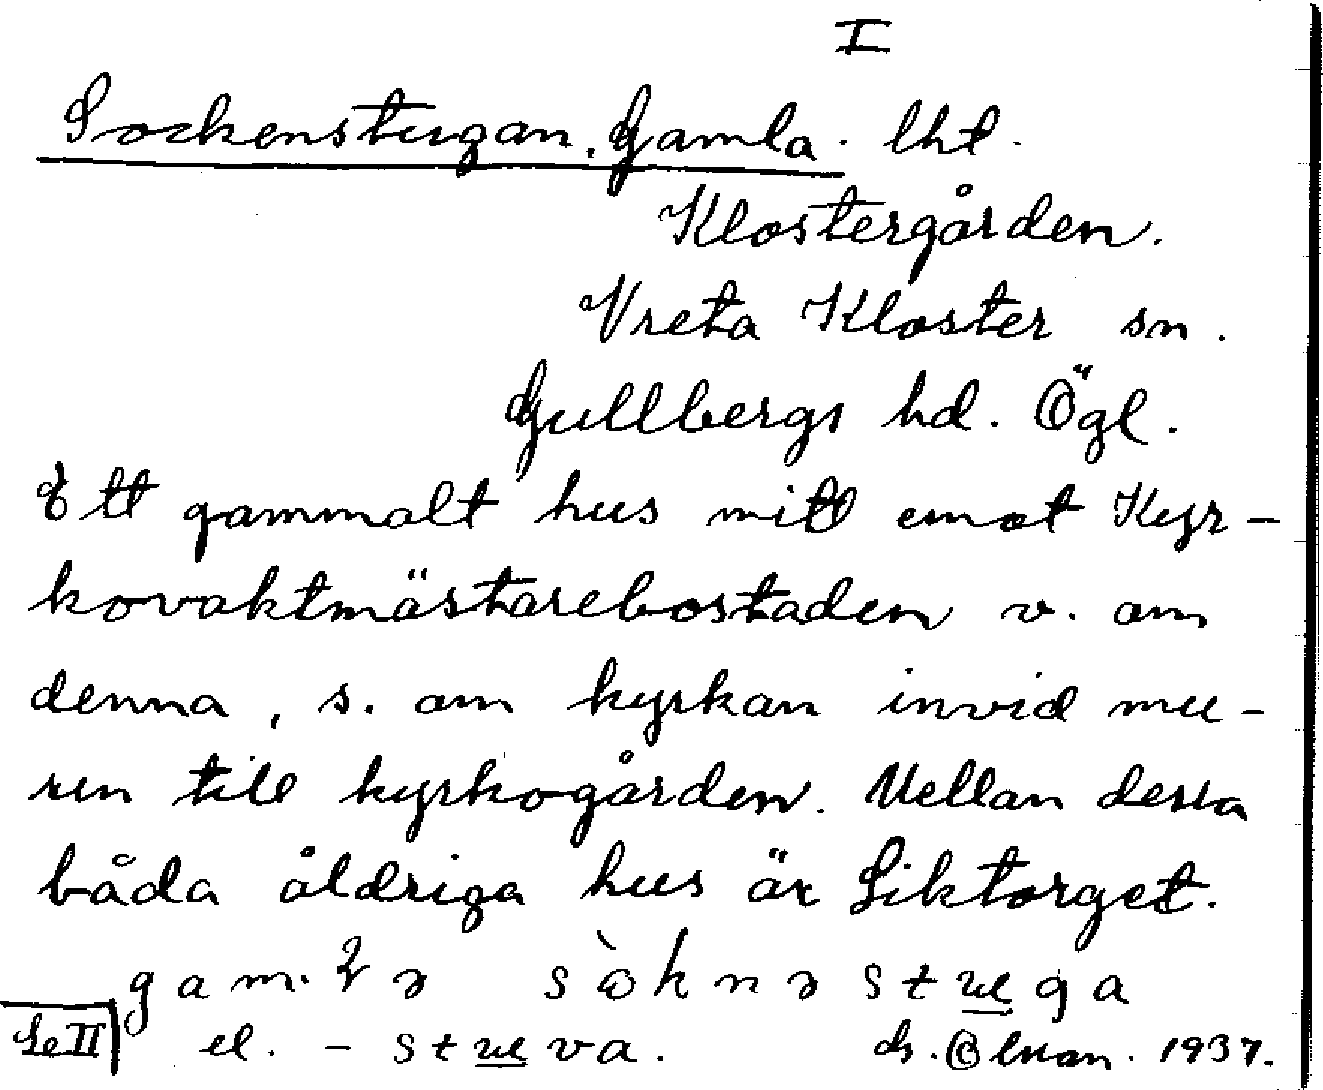 I
Sockenstugan, Gamla. lht.
Klostergården.
Vreta Kloster sn.
Gullbergs hd. Ögl.
Ett gammalt hus mitt emot Kyr-
kovaktmästarebostaden v. om
denna, s. om kyrkan invid mu-
ren till kyrkogården. Mellan dessa
båda åldriga hus är Liktorget.
sòknə stuga
el. - stuva. 1937.